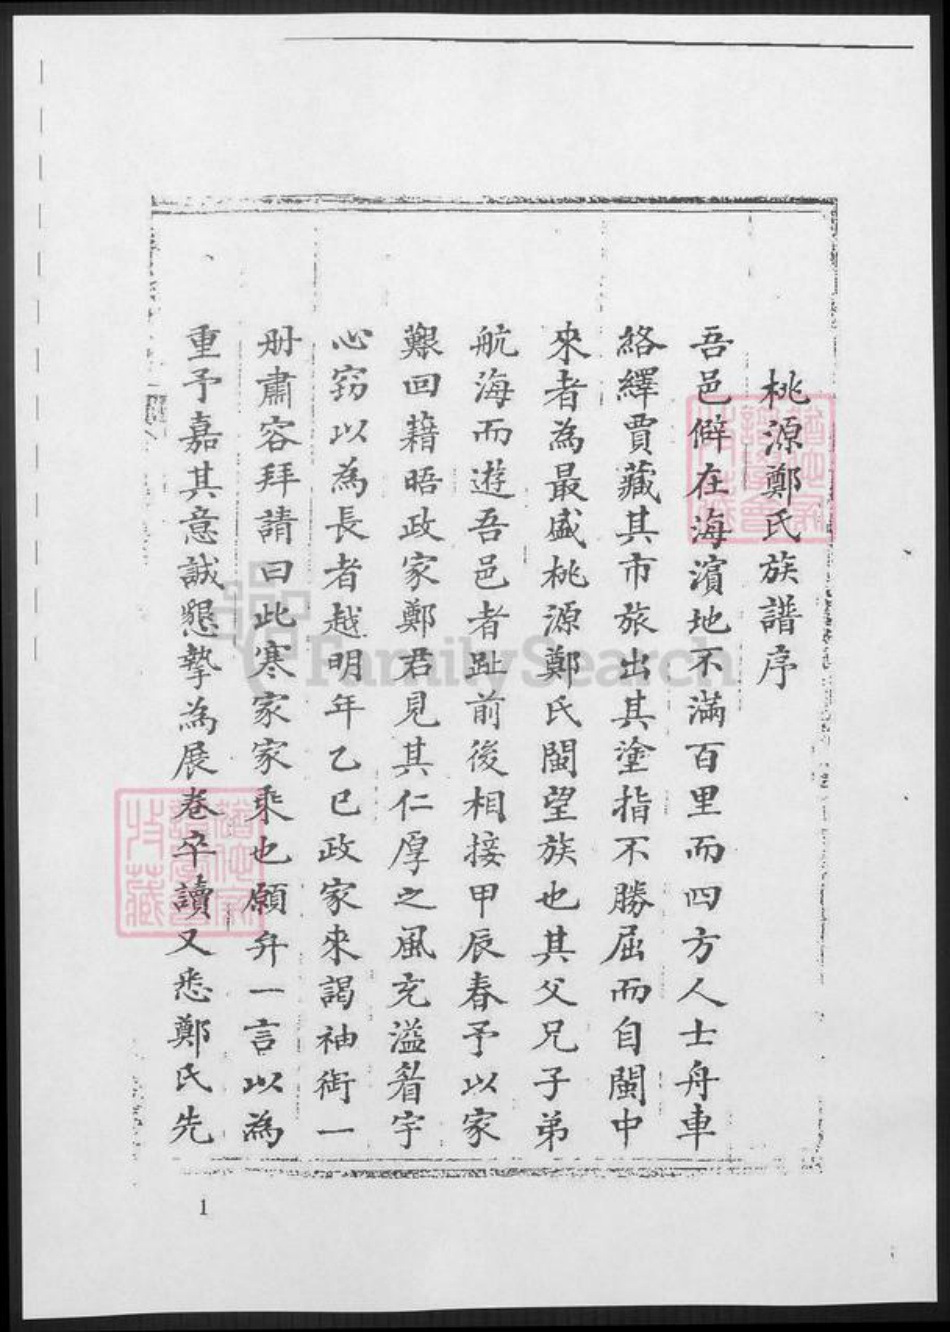 桃源鄭氏族譜序
吾邑僻在海濱地不滿百里而四方人士舟車
絡繹賈藏其市旅出其塗指不勝屈而自閩中
來者為最盛桃源鄭氏閩望族也其父兄子弟
航海而遊吾邑者趾前後相接甲辰春予以家
艱回籍晤政家鄭君見其仁厚之風充溢眉宇
心窃以為長者越明年乙巳政家來謁袖衘一
册肅容拜請曰此寒家家乘也願弁一言以為
重予嘉其意誠懇摯為展卷卒讀又悉鄭氏先
1
FamilySearch